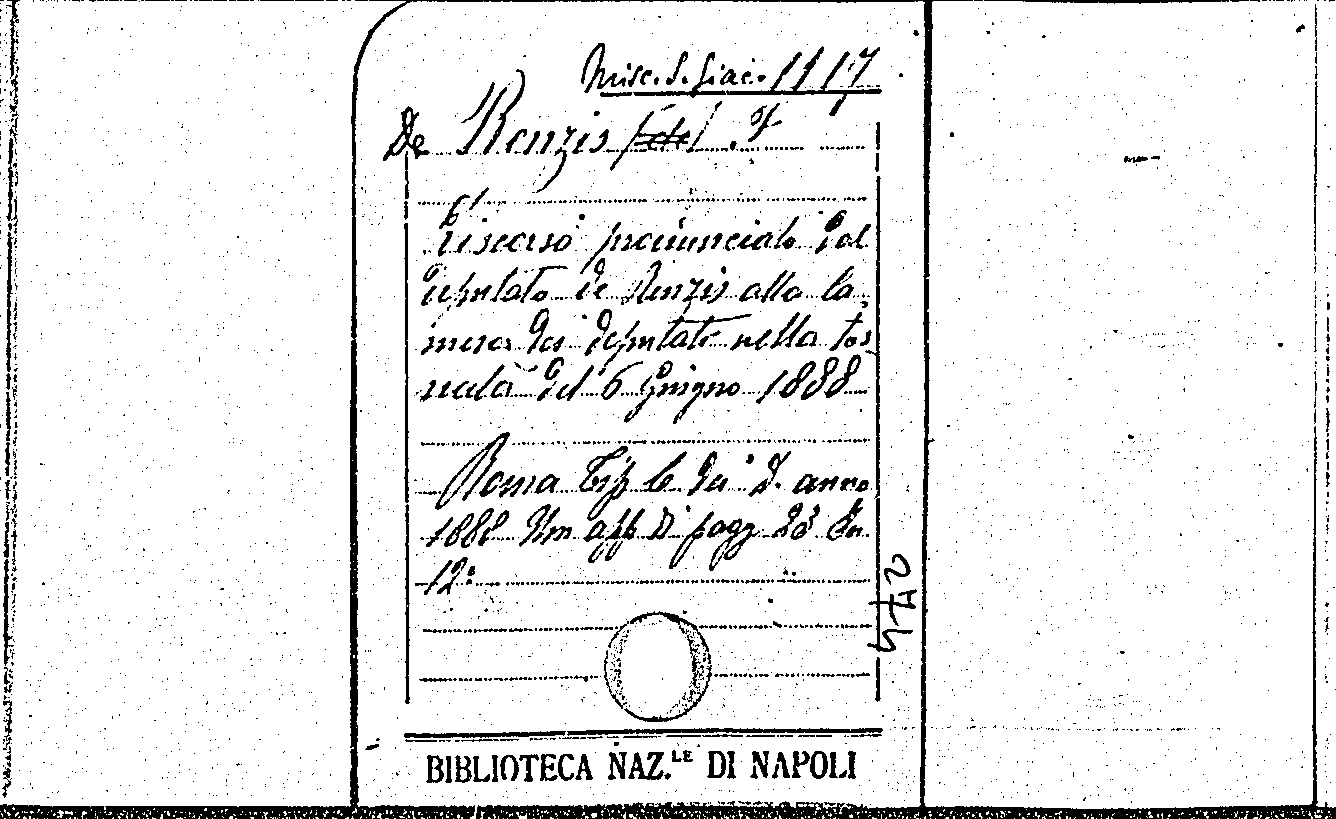 Misc. S. Giac. 1117
De Renzis F.
Discorso pronunciato dal
deputato de Renzis alla Ca
mera dei deputati nella tor
nata del 6 Giugno 1888
Roma Tip C. dei D. anno
1888 Un aff di pagg 23 In
12º
BIBLIOTECA NAZ.LE DI NAPOLI